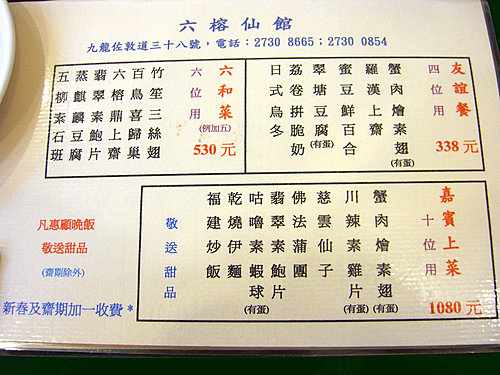 六榕仙館
九龍佐敦道三十八號，電話：2730 8665；2730 0854
友誼餐
338元
四位用
蟹肉燴素翅(有蛋)
羅漢上齋
蜜豆鮮百合
翠塘豆腐(有蛋)
荔卷拼脆奶
日式烏冬
六和菜
(例加五)
530元
六位用
竹笙三絲翅
百鳥喜歸巢
六榕鼎上齋
翡翠素鮑片
蒸麒麟豆腐
五柳素石班
嘉賓上菜
1080元
十位用
蟹肉燴素翅(有蛋)
川辣素雞片(有蛋)
慈雲仙子
佛法蒲團
翡翠素鮑片
咕嚕素蝦球(有蛋)
乾燒伊麵
福建炒飯
敬送甜品
凡惠顧晚飯
敬送甜品
(齋期除外)
新春及齋期加一收費*